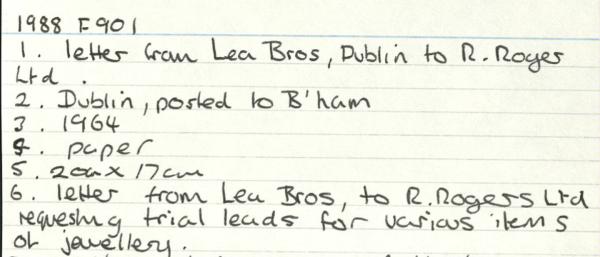 1988 F901
1. letter from Lea Bros, Dublin to R. Roges
Ltd.
2. Dublin, posted to B'ham
3. 1964
4. paper
5. 20cm x 17cm
6. letter from Lea Bros, to R. Rogers Ltd
requesting trial leads for various items
of jewellery.